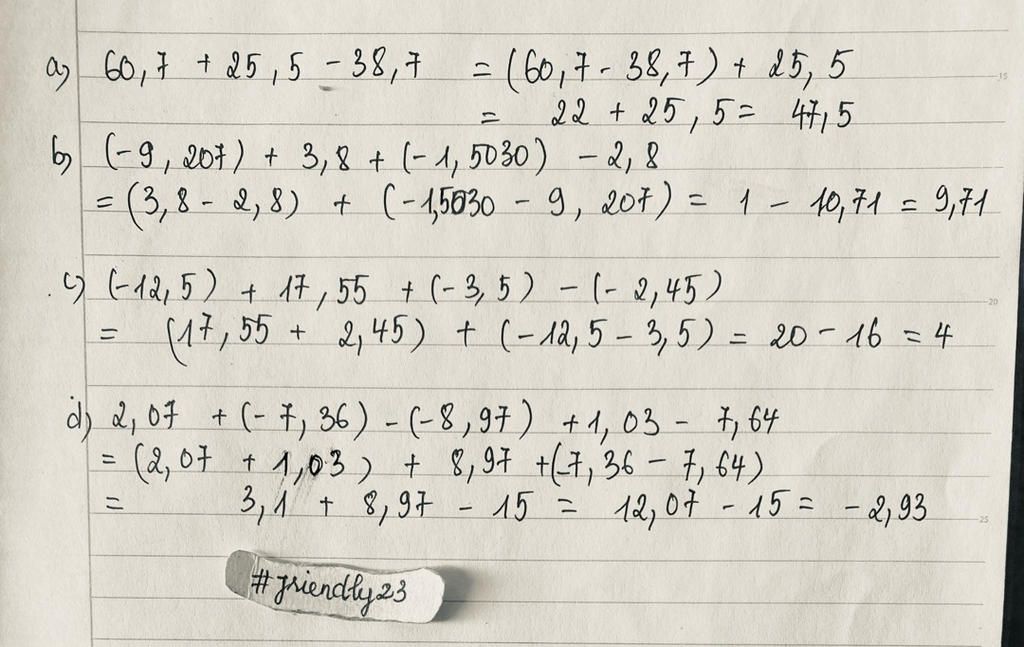 a) 60,7 + 25,5 - 38,7 = (60,7 - 38,7) + 25,5
= 22 + 25,5 = 47,5
b) (-9,207) + 3,8 + (-1,5030) - 2,8
= (3,8 - 2,8) + (-1,5030 - 9,207) = 1 - 10,71 = 9,71
c) (-12,5) + 17,55 + (-3,5) - (-2,45)
= (17,55 + 2,45) + (-12,5 - 3,5) = 20 - 16 = 4
d) 2,07 + (-7,36) - (-8,97) + 1,03 - 7,64
= (2,07 + 1,03) + 8,97 + (-7,36 - 7,64)
= 3,1 + 8,97 - 15 = 12,07 - 15 = -2,93
#friendly23
15
20
25